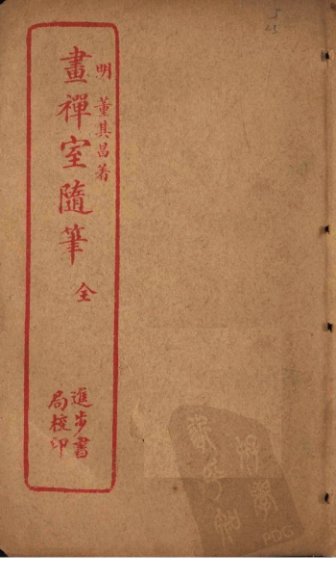 明 董其昌著
畫禪室隨筆 全
進步書
局校印
PDG